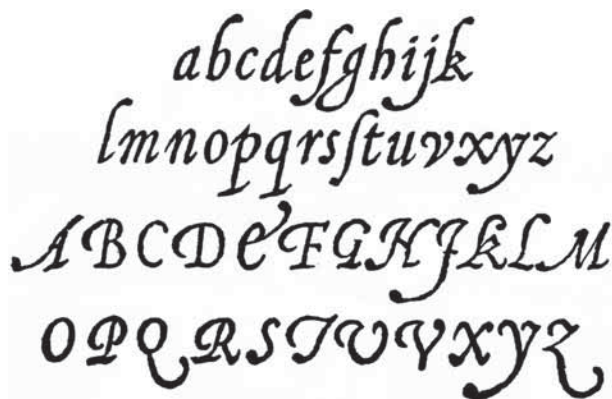 abcdefghijk
lmnopqrsſtuvxyz
ABCDEFGHJKLM
OPQRSTUVXYZ